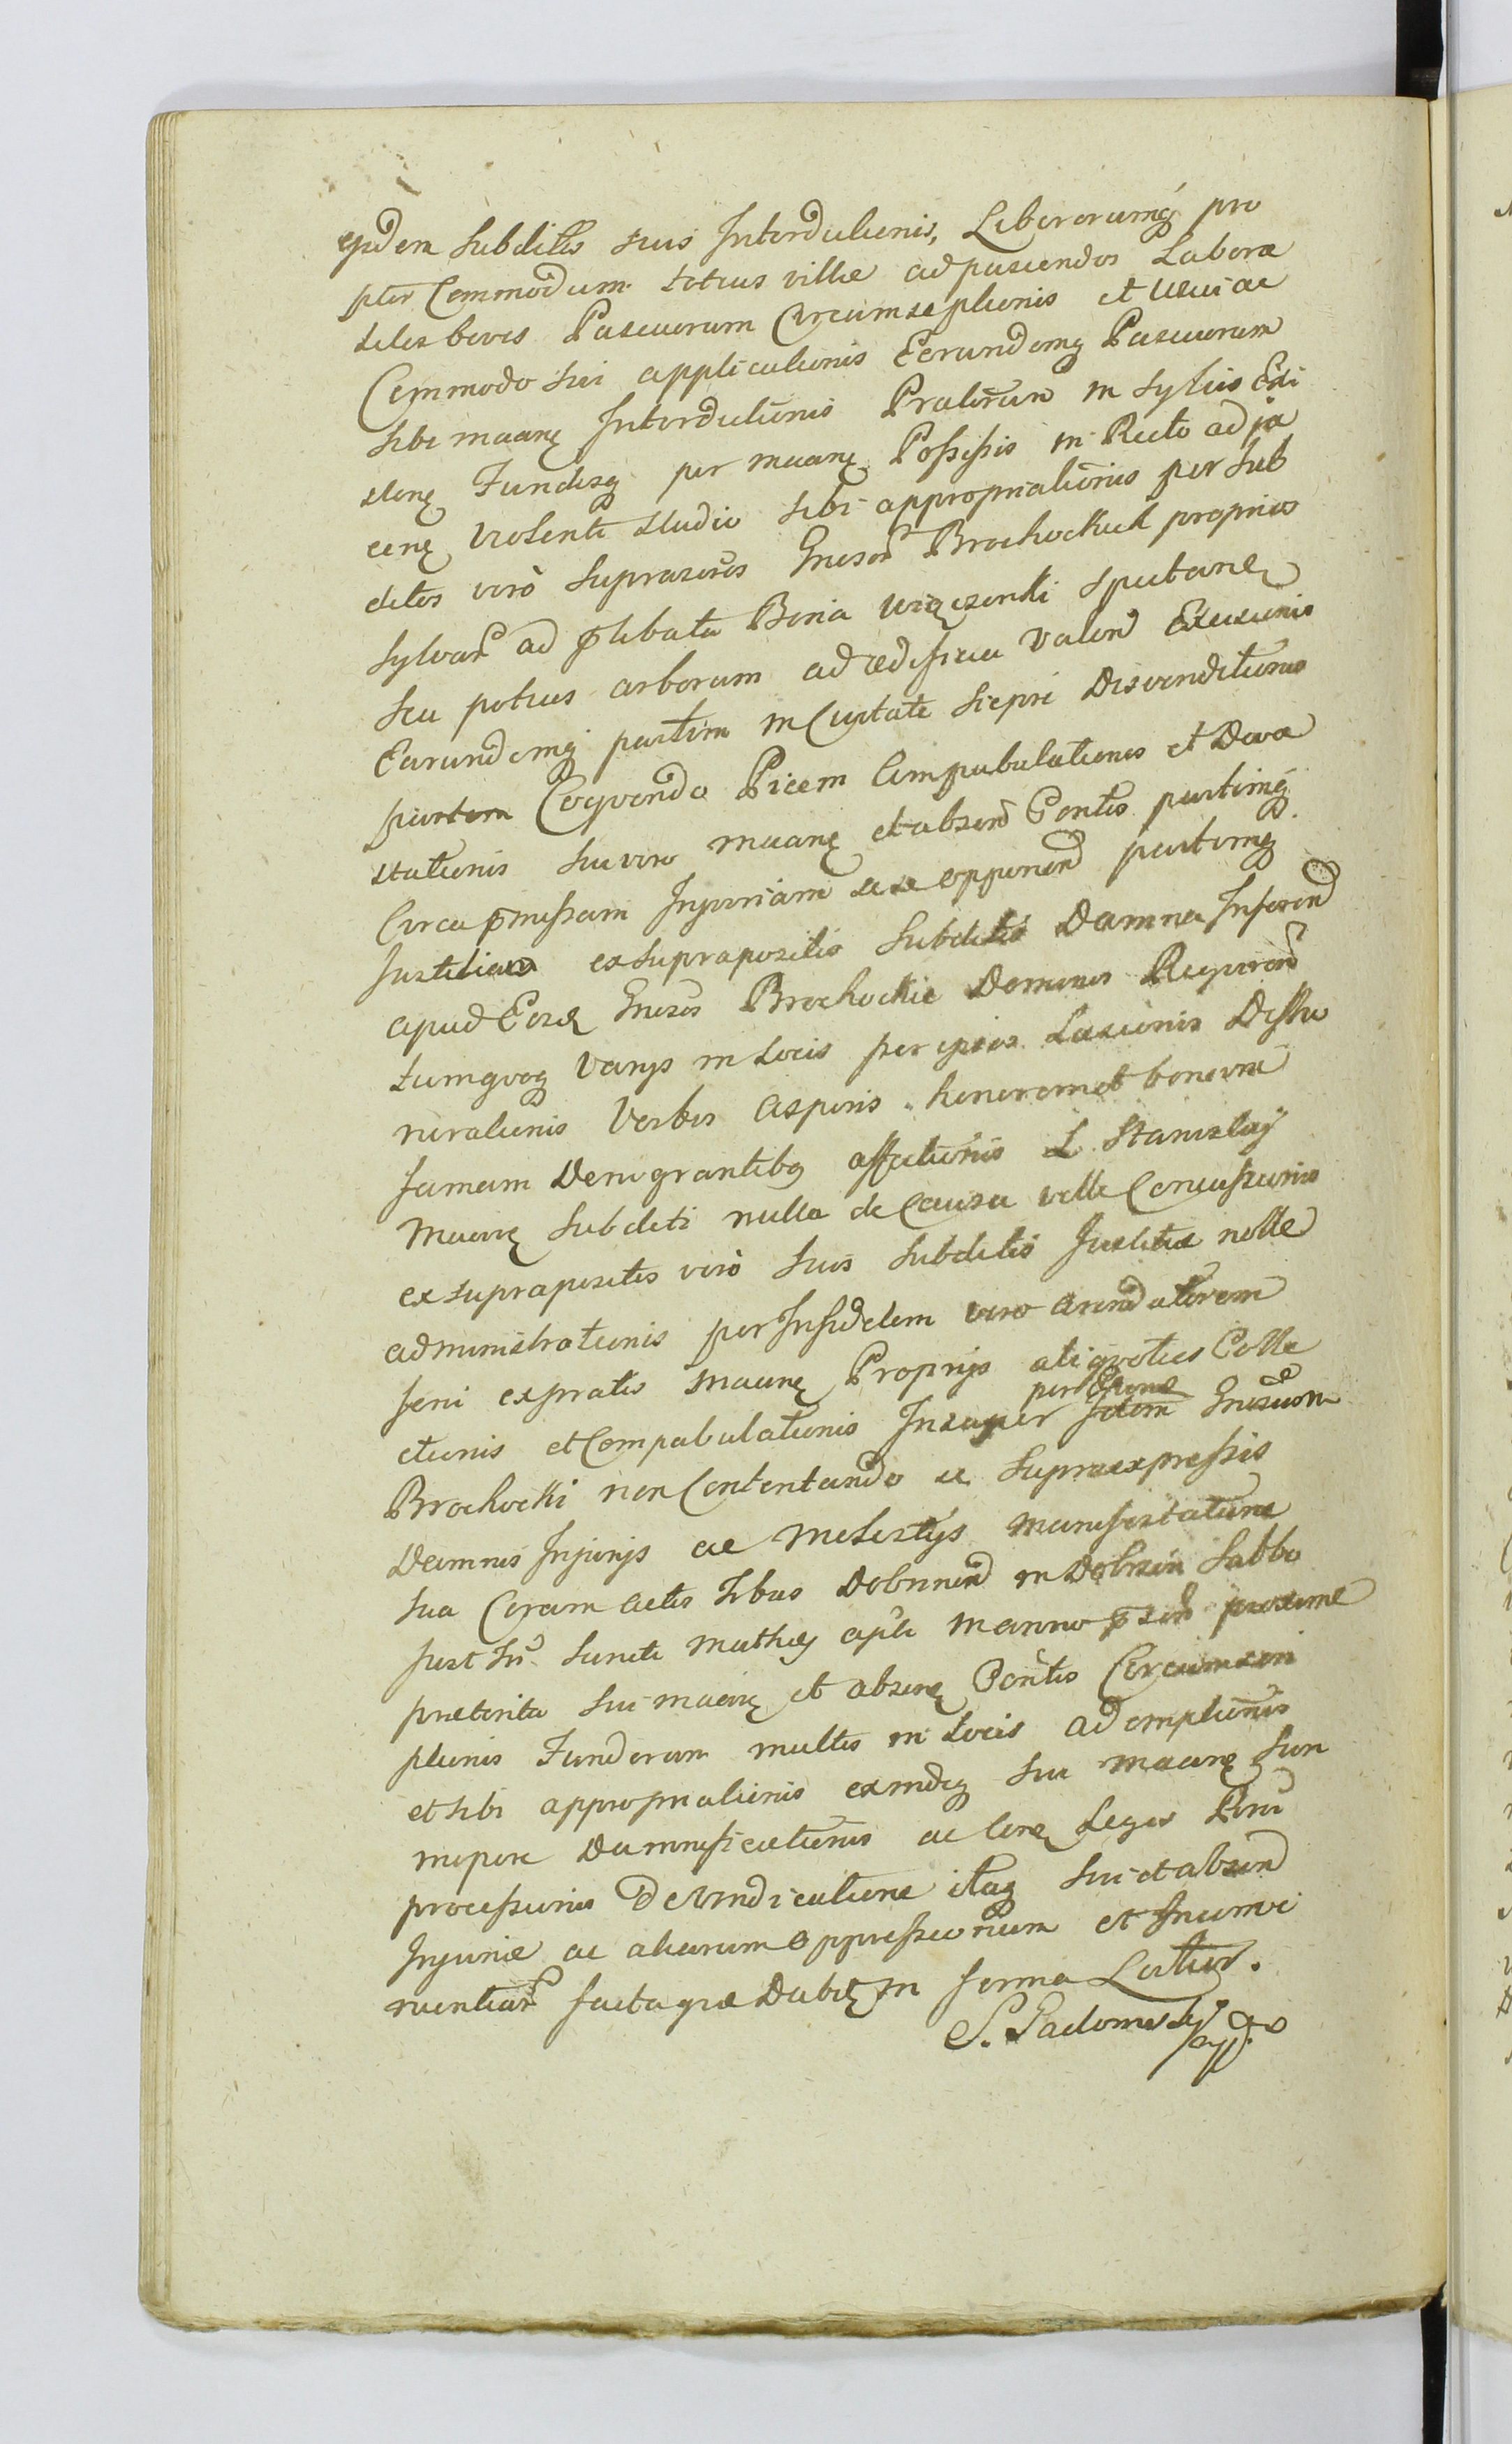 ejdem subditis suis Interdictionis, Liberorumq pro
pter Commodum totius villæ ad pascendos Labora
biles boves Pascuorum Circumseptionis et usui ac
Commodo sui applicationis Eorundemq Pascuorum
sibi maanę Interdictionis Pratorum in sylvis
Fundisq per maanę Possessis in Recto adja
cenę violenti studio sibi appropriationis per sub
ditos verò suprascros Gnesor Brochockich proprios
sylvar ad p̄libata Bona spectanę
seu potius arborum ad ædificia valend Excisionis
Earundemq partim in Civitate Siepri Disvenditionis
partim Coqvendo Picem Compabulationis et Deva
stationis sui vero maanę et absend Pontis partimq
Circa p̄missam Injuriam sese opponend partimq
Justitiam ex suprapositis subditis Damna Inferend
apud Eosd Gnesos Brochockie Dominos Reqvirend
tumqvoq varijs in Locis per ipsos Lacionis Disho
norationis Verbis asperis honorem et bonam
famam Denigrantibq affectionis L. Stanislaij
maanę subditi nulla de Causa velle Concussionis
ex suprapositis verò suis subditis Justitiæ nolle
administrationis per Infidelem vero arendatorem
feni ex pratis maanę Proprijs aliqvoties Colle
ctionis et Compabulationis Insuper Idem Gnesum
Brochocki non Contentando se supraexpressis
Damnis Injurijs ac molestijs manifestatione
sua Coram actis Dobrinen in Dobrzin Sabbo
post fm Sancti Mathiæ apli in anno p̄sen proxime
præterita sui maanę et absenę Pontis Circumsem
ptionis Fundorum multis in Locis ademptionis
et sibi appropriationis exindeq sui maanę Jun
mepore Damnificationis ac Legis
processionis De vindicatione itaq sui et absend
Injuriæ ac aliarum oppressionum et Inconve
nientiar facta præ Dabit in forma Latior.
S. Radomsky